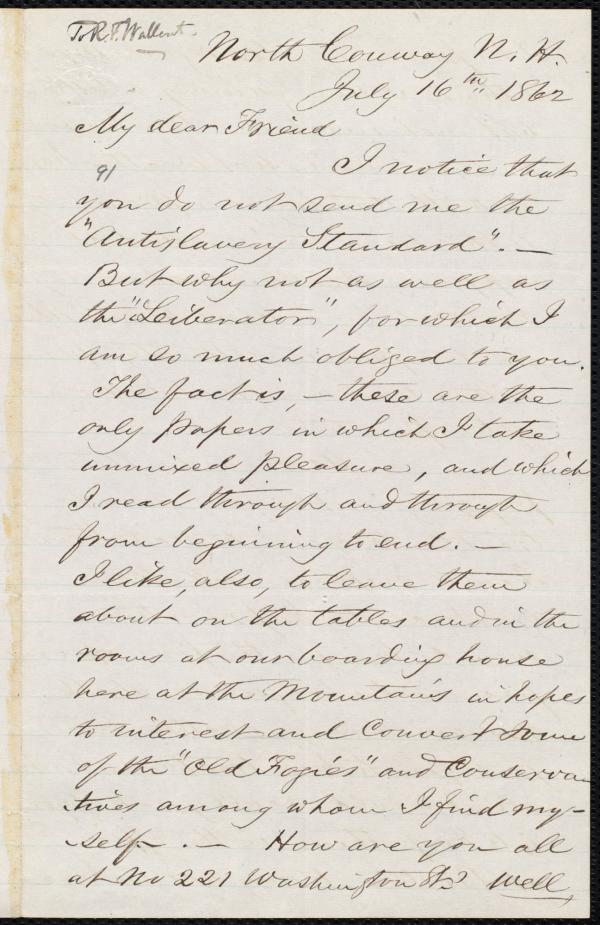 To R. F. Wallcut.
North Conway N. H.
July 16th, 1862
My dear Friend
91
I notice that
you do not send me the
"Antislavery Standard". —
But why not as well as
the "Leiberator", for which I
am so much obliged to you.
The fact is, — these are the
only papers in which I take
unmixed pleasure, and which
I read through and through
from beginning to end. —
I like, also, to leave them
about on the tables and in the
rooms at our boarding house
here at the Mountains in hopes
to interest and convert some
of the "Old Fogies" and Conserva-
tives among whom I find my-
self. — How are you all
at No 221 Washington St? Well,